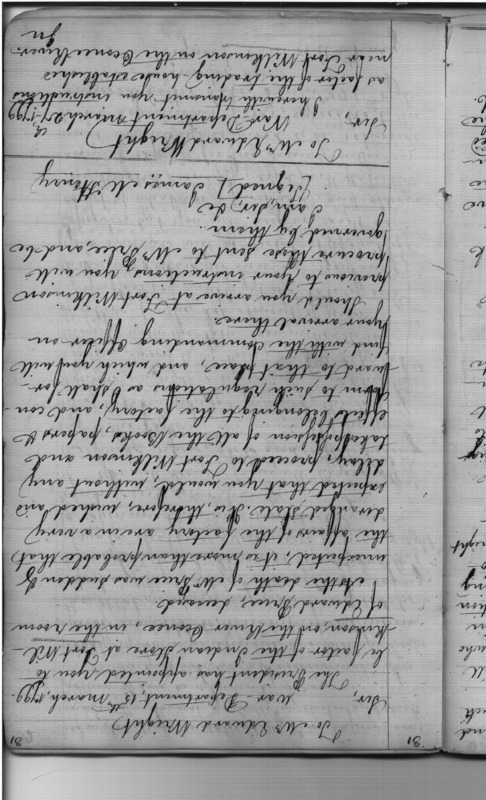 31
To Mr Edward Wright
Sir, War Department, 15th March, 1799.
The President has appointed you to
be factor of the Indian Store at Fort Wil
kinson, on the River Oconee, in the room
of Edward Price, deceased.
As the death of Mr Price was sudden &
unexpected, it is more than probable that
the affairs of the factory are in a very
deranged State. It is, therefore, wished and
expected that you would, without any
delay, proceed to Fort Wilkinson and
take possession of all the Books, papers &
effects belonging to the factory, and con-
form to such regulations as I shall for-
ward to that place, and which you will
find with the Commanding Officer on
your arrival there.
Should you arrive at Fort Wilkinson
previous to your instructions, you will
procure those sent to Mr Price, and be
governed by them.
I am, Sir, &c
[Signed] James McHenry
To Mr Edward Wright
Sir, War Department March 27th 1799
I herewith transmit you instructions
as factor of the trading house established
near Fort Wilkinson on the Oconee River.
In
31